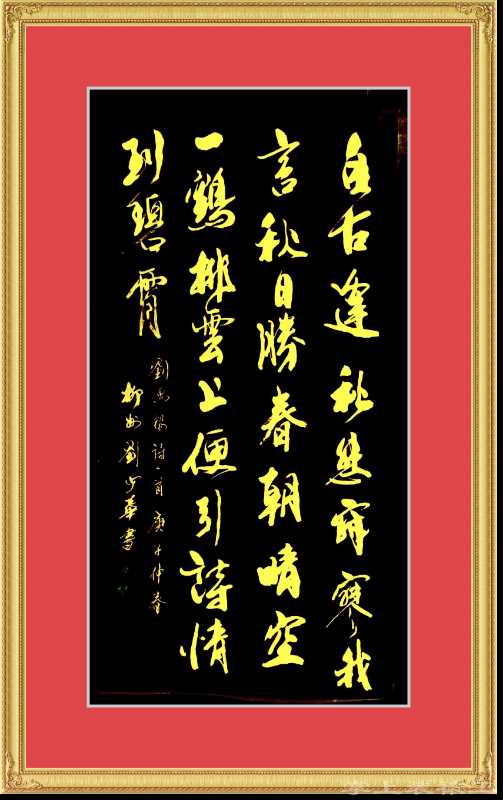 自古逢秋悲寂寥我
言秋日勝春朝晴空
一鶴排雲上便引詩情
到碧霄
劉禹錫詩一首庚子仲春
柳州劉少書